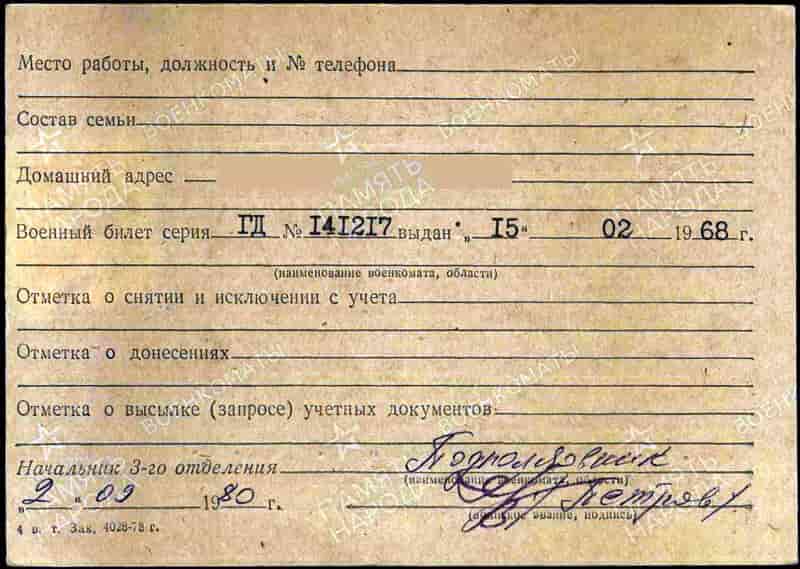 Место работы, должность и № телефона
Состав семьи
Домашний адрес
Военный билет серия ГД № 141217 выдан „ 15 “ 02 1968 г.
(наименование военкомата, области)
Отметка о снятии и исключении с учета
Отметка о донесениях
Отметка о высылке (запросе) учетных документов
Начальник 3-го отделения Подполковник
(наименование военкомата, области)
„ 2 “ 09 1980 г. /Петров/
(воинское звание, подпись)
4 в. т. Зак. 4028-78 г.
ПАМЯТЬ НАРОДА
ВОЕНКОМАТЫ